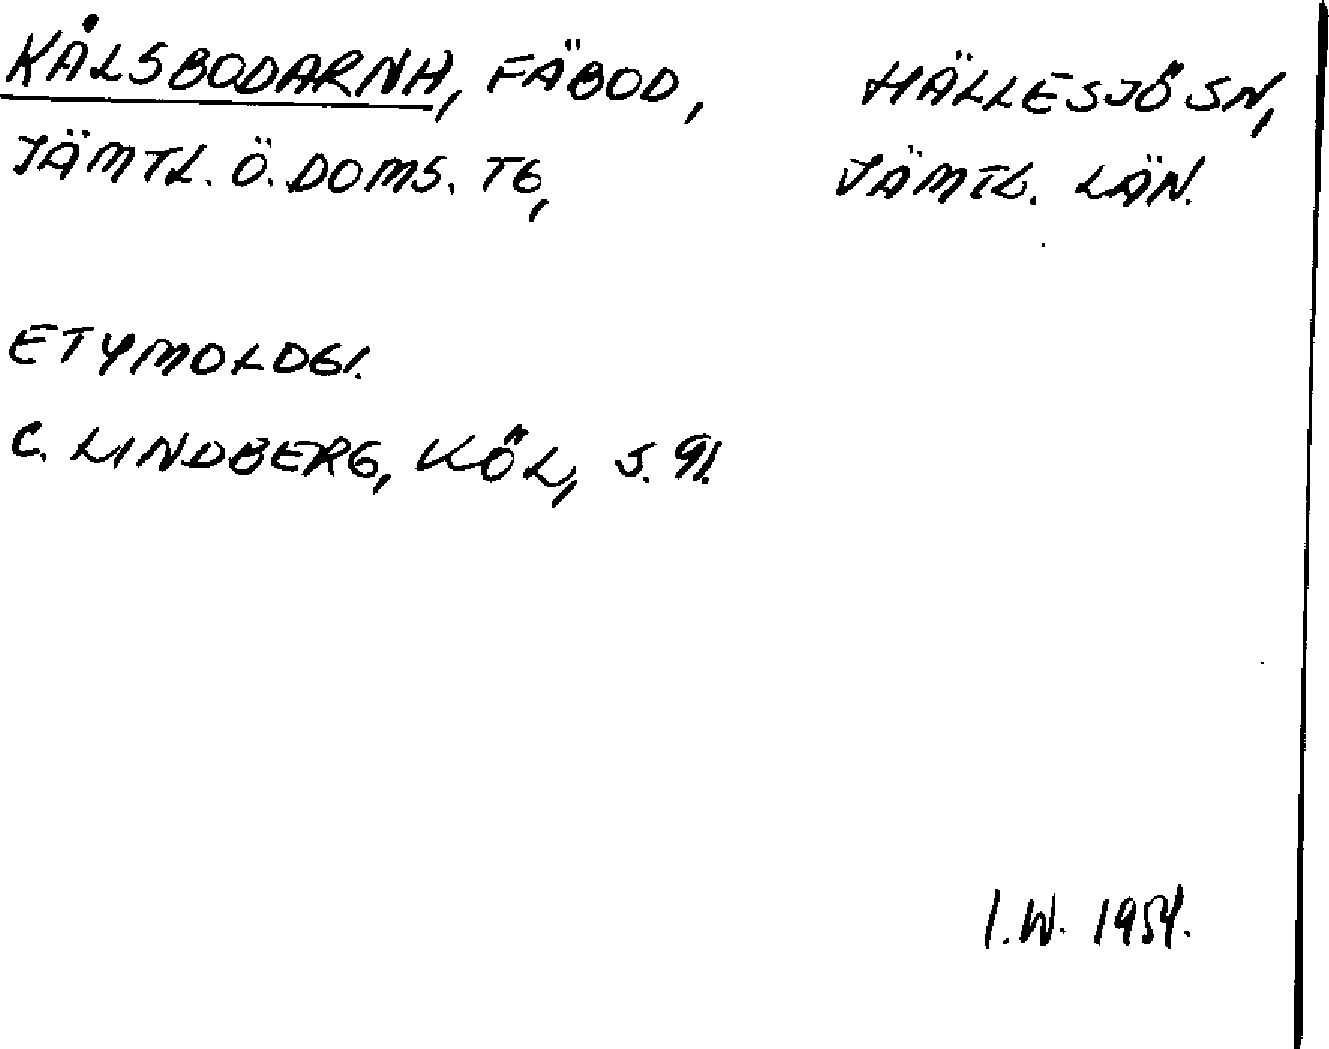 KÅLSBODARNA, FÄBOD, HÄLLESJÖ SN,
JÄMTL. Ö. DOMS. TG, JÄMTL. LÄN.
ETYMOLOGI.
C. LINDBERG, KÖL, S. 91.
I.W. 1954.